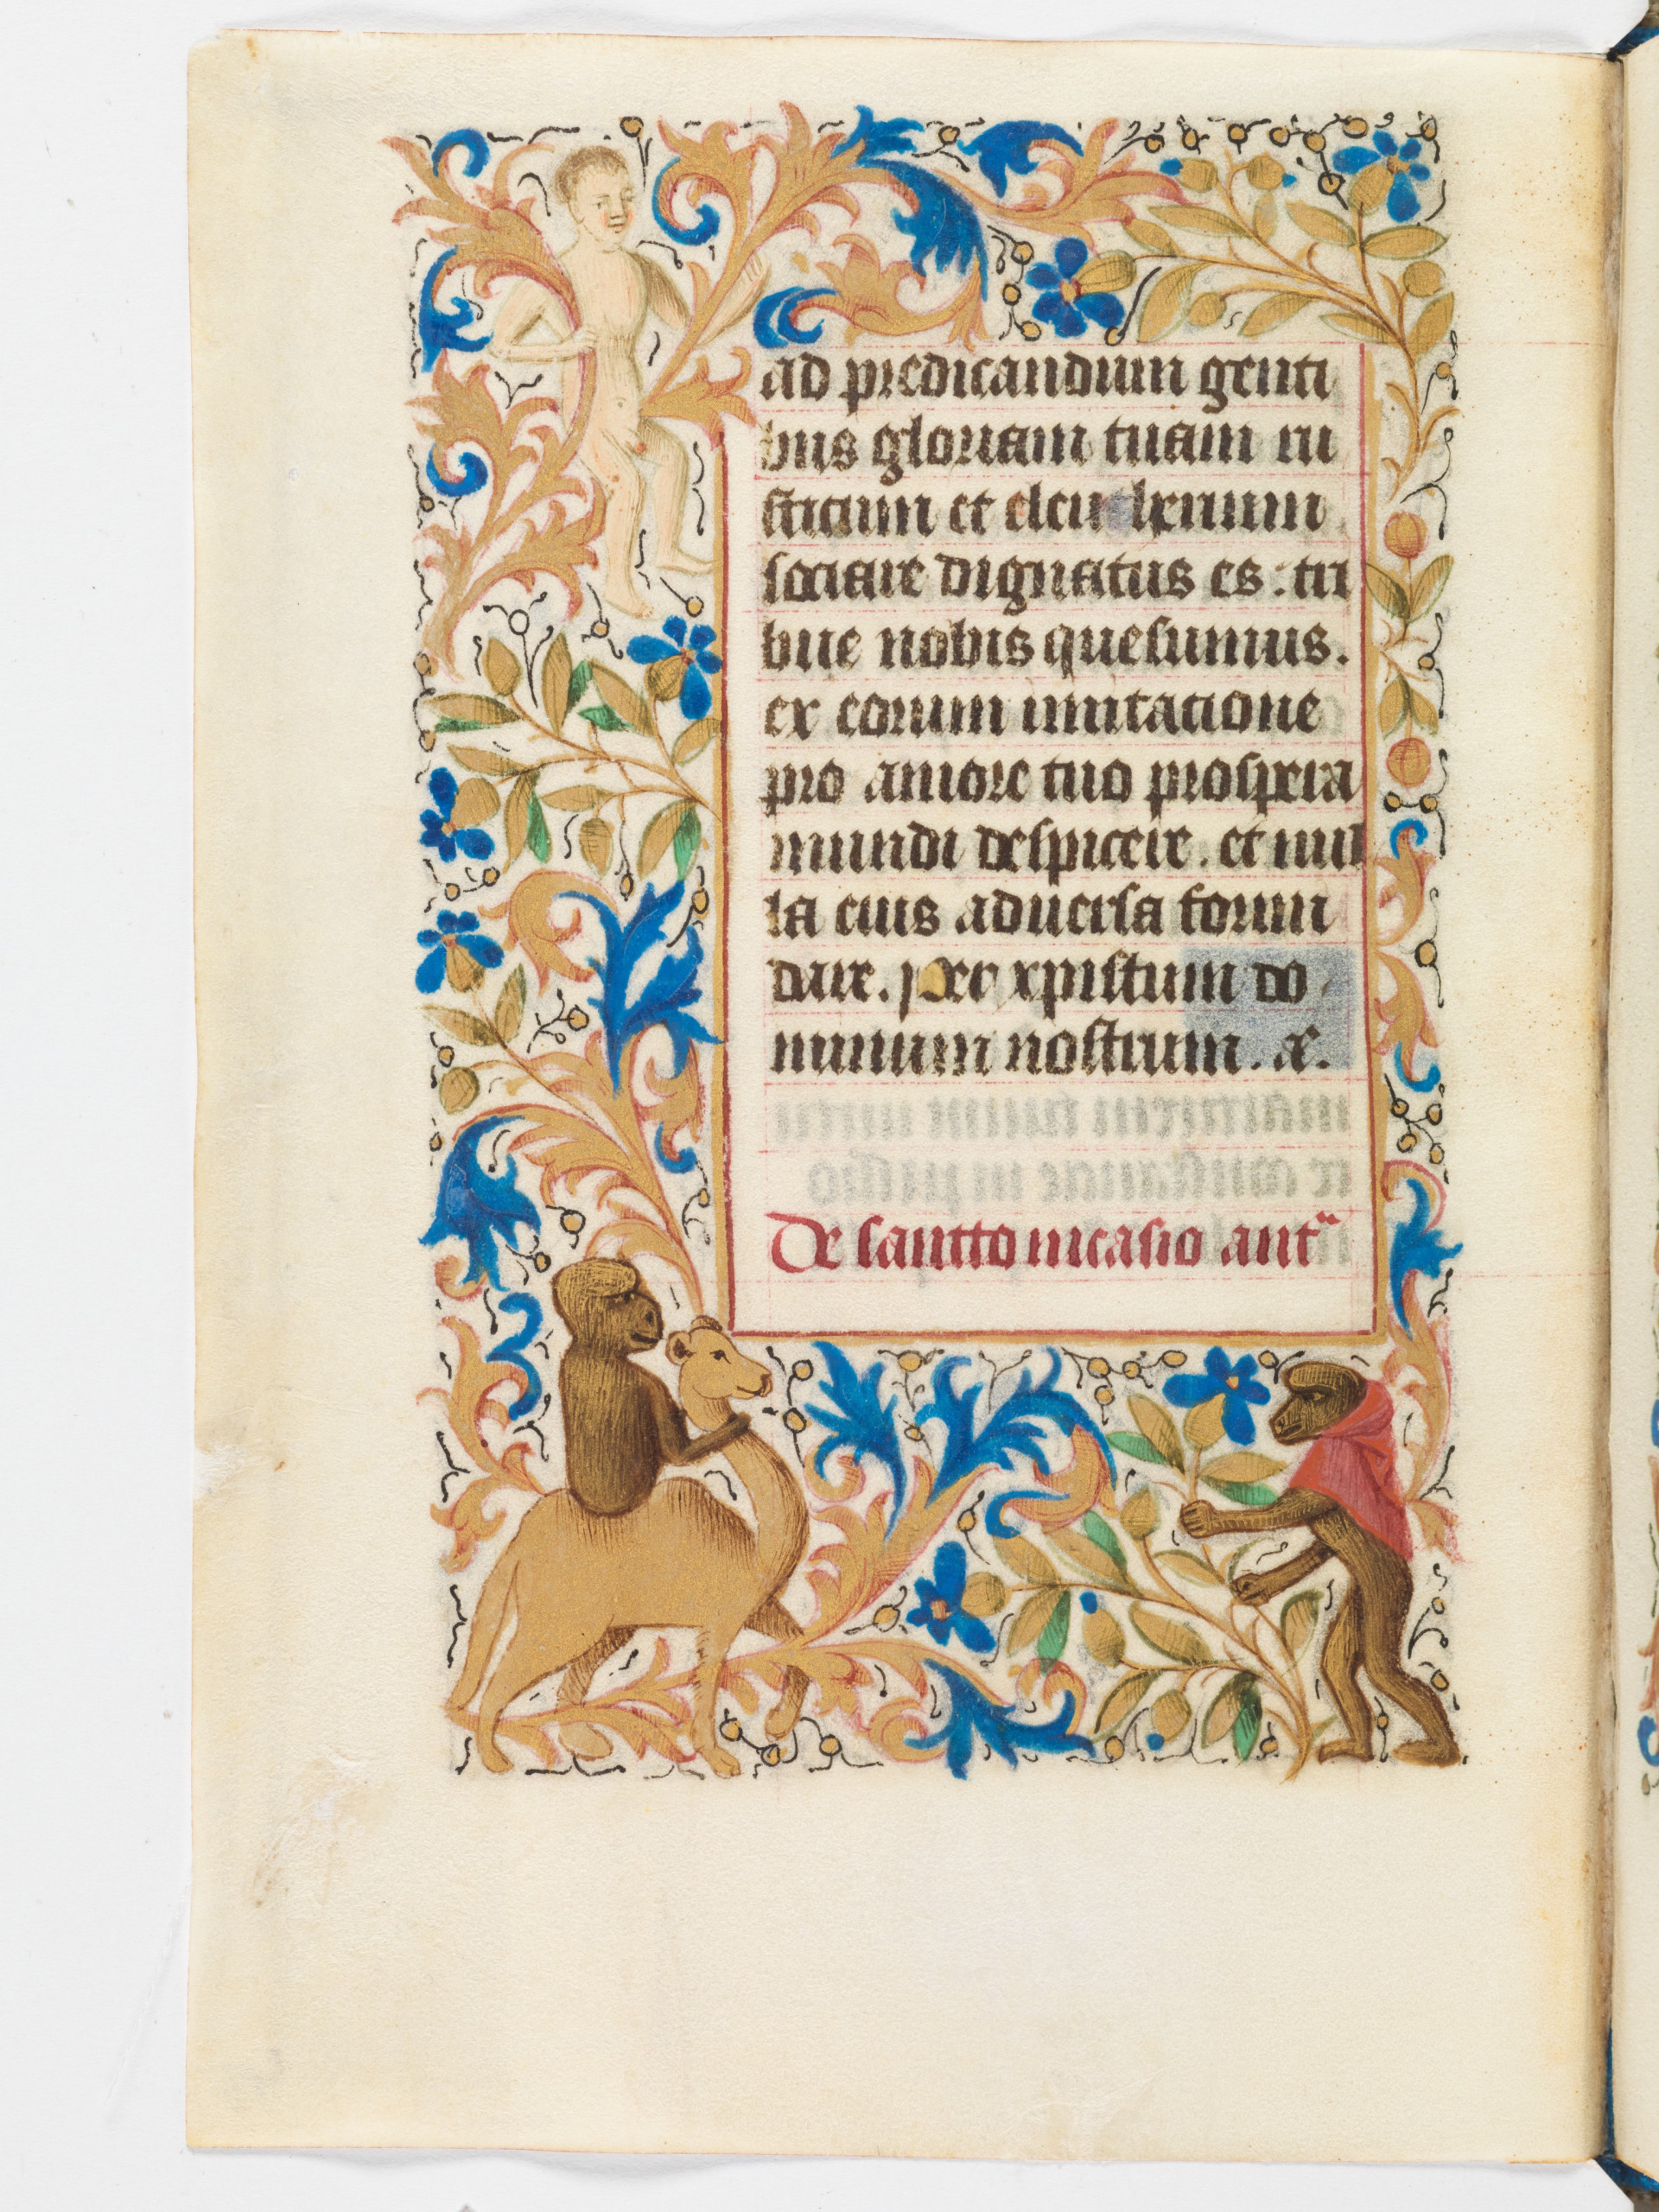 ad predicandum genti
bus gloriam tuam ru
sticum et eleutherium
sociare dignatus es: tri
bue nobis quesumus.
ex eorum imitacione
pro amore tuo prospera
mundi despicere. et nul
la eius aduersa formi
dare. Per xpistum do
minum nostrum. &.
De santto nicasio ant&#x27;